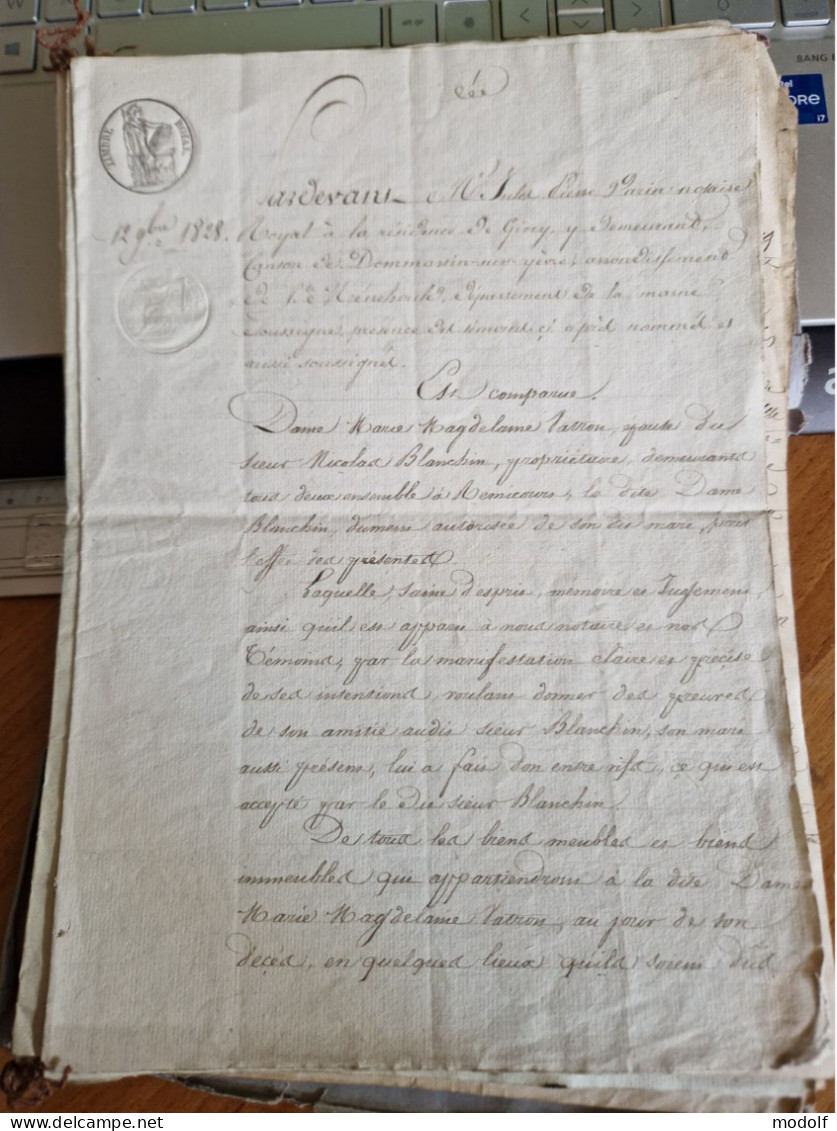 TIMBRE ROYAL
12 9.bre 1828.
Pardevant Me Jules Pierre Parin notaire
Royal à la résidence de Givry, y demeurant,
Canton de Dommartin-sur-yèvre, arrondissement
de Ste Ménéhould, département de la marne
Soussigné, présence des témoins ci après nommés et
aussi soussignés.
Est comparue.
Dame Marie Magdelaine Vatron, épouse du
sieur Nicolas Blanchin, propriétaire, demeurants
tous deux ensemble à Remicourt, la dite Dame
Blanchin, dument autorisée de son dit mari, pour
l'effet des présentes.
Laquelle, saine d'esprit, mémoire et Jugement,
ainsi quil est apparu à nous notaire et nos
Témoins, par la manifestation claire et précise
de ses intentions, voulant donner des preuves
de son amitié audit sieur Blanchin, son mari
aussi présent, lui a fait don entre vifs, ce qui est
accepté par le dit sieur Blanchin.
De tous les biens meubles et biens
immeubles qui appartiendront à la dite Dame
Marie Magdelaine Vatron, au jour de son
decès, en quelques lieux quils soient dus
BANG
CORE
i7
https://www.delcampe.net
modolf